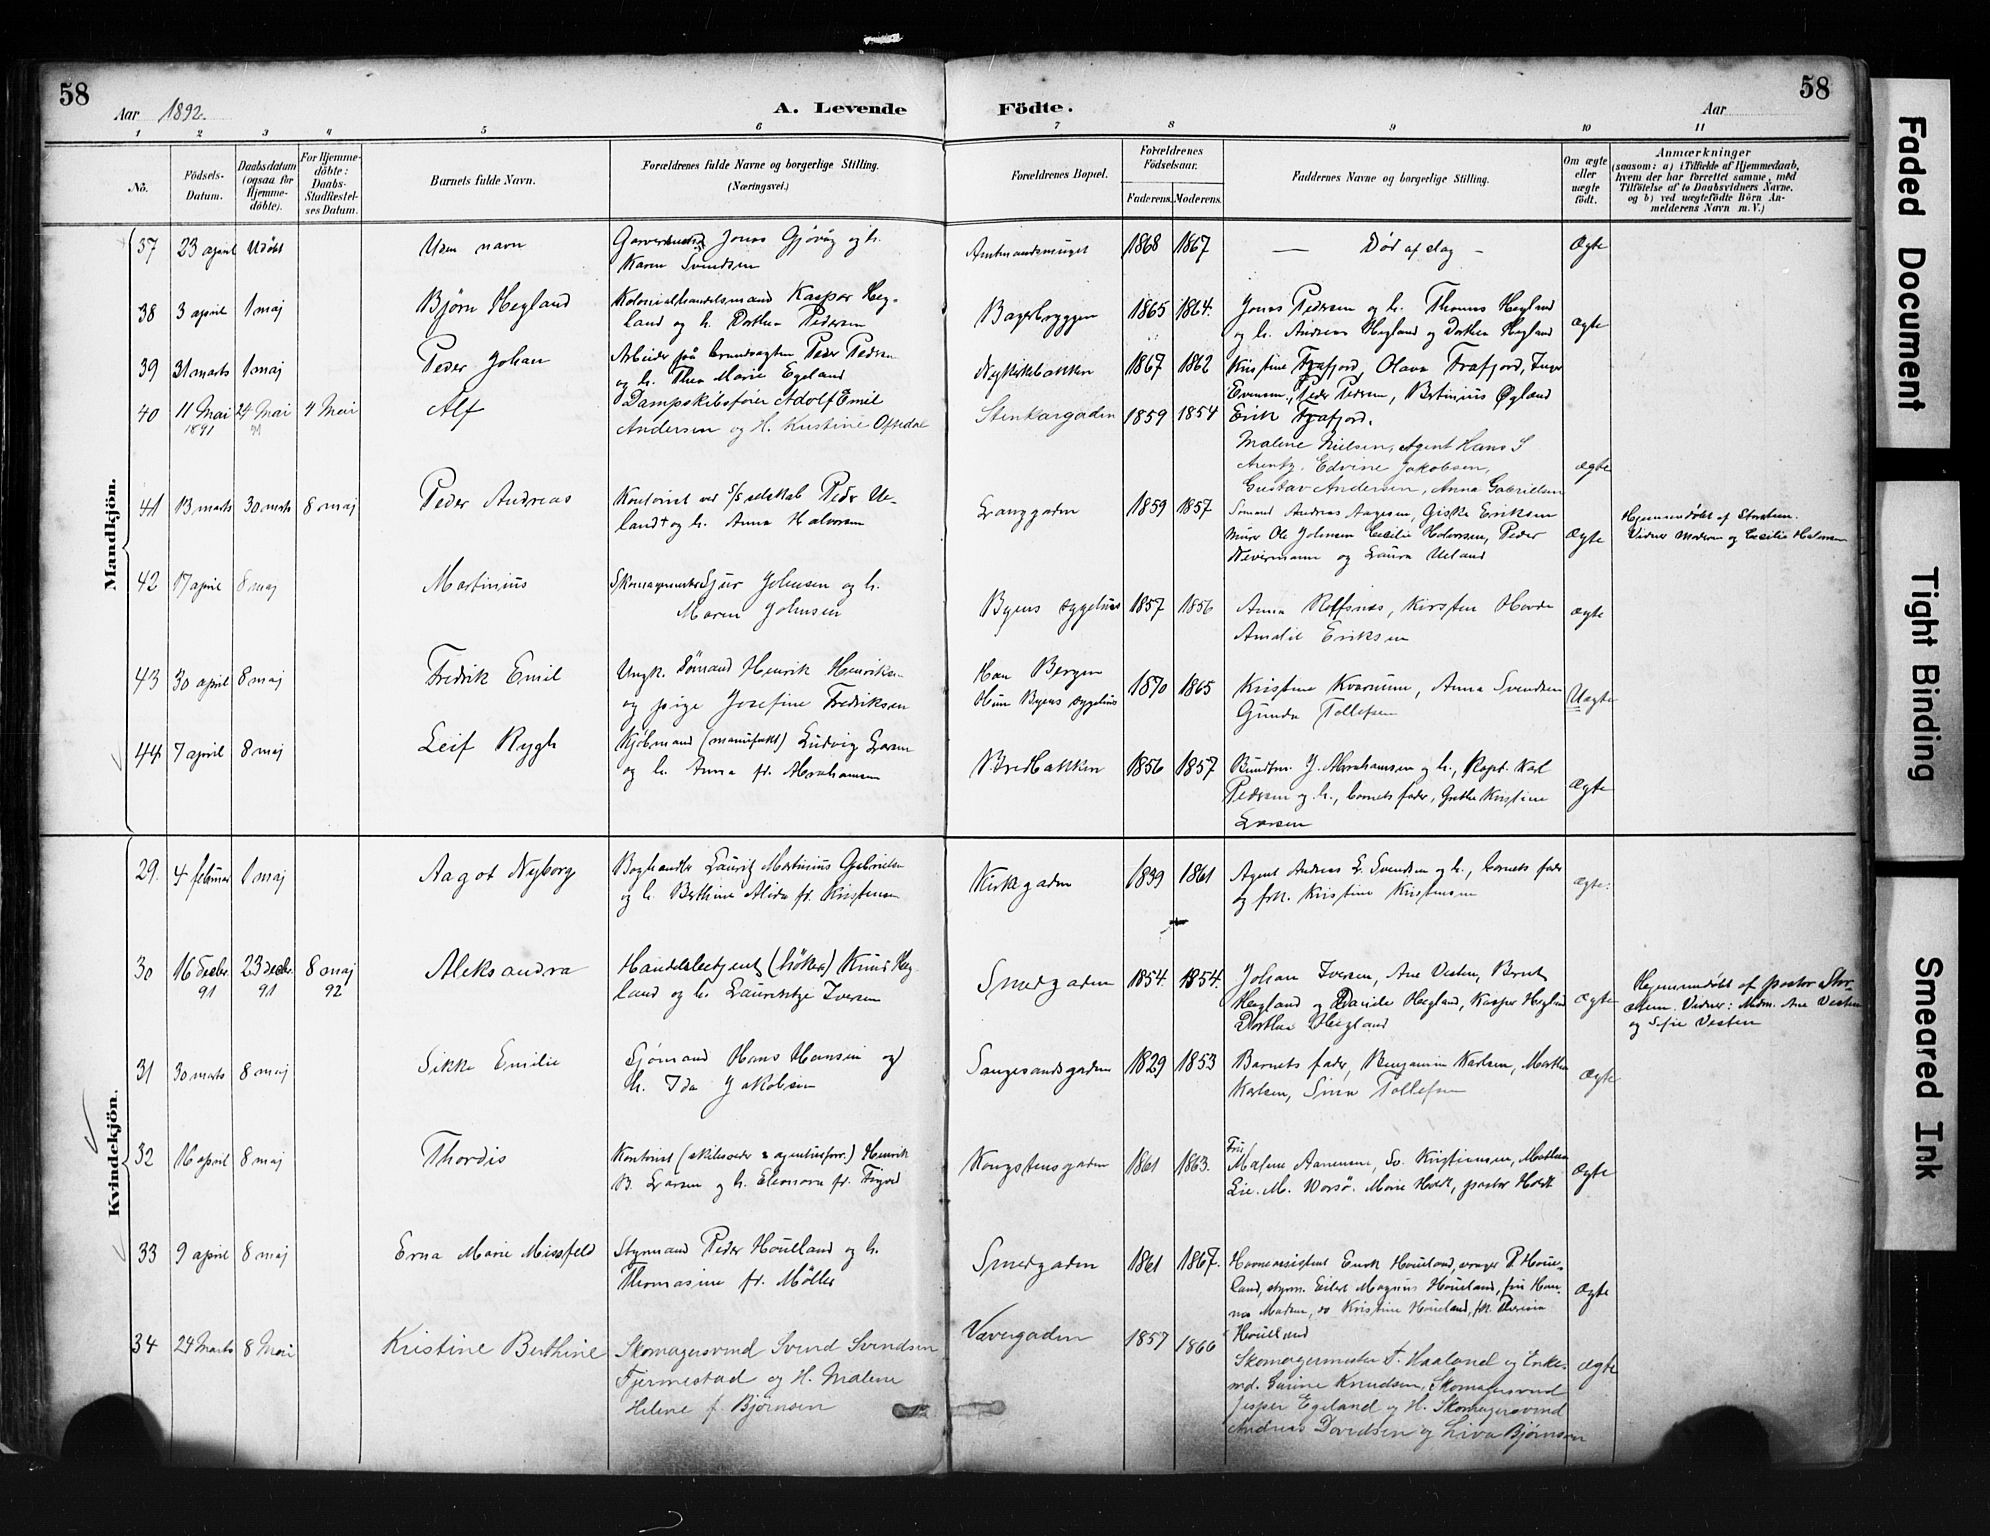 58
58
Aar 1892.
A. Levende Födte.
Aar
1 2 3 4 5 6 7 8 9 10 11
No.
Födsels-Datum.
Daabsdatum (ogsaa for Hjemmedöbte).
For Hjemmedöbte: Daabs-Stadfæstelses Datum.
Barnets fulde Navn.
Forældrenes fulde Navne og borgerlige Stilling. (Næringsvei.)
Forældrenes Bopæl.
Forældrenes Födselsaar.
Faderens. Moderens.
Faddernes Navne og borgerlige Stilling.
Om ægte eller uægte födt.
Anmærkninger
(saasom: a) i Tilfælde af Hjemmedaab, hvem der har forrettet samme, med Tilföielse af to Daabsvidners Navne. og b) ved uægtefödte Börn Anmelderens Navn m. V.)
Mandkjön.
37 23 april Udöbt Uden navn Jonas Gjövåg og h. Karen Svendsen 1868 1867 — Död af dag — Ægte
38 3 april 1 maj Bjørn Hegland Kolonialhandelsmand Kaspar Hegland og h. Dorthea Pedersen Bagerbryggen 1865 1864. Jonas Pedersen og h. Thomas Hegland og h. Andreas Hegland og Dorthea Hegland ægte
39 31 marts 1 maj Peder Johan Arbeider på Peder Pedersen og h. Thea Marie Egeland Nykirkebakken 1867 1862 Kristine Frafjord, Olava Frafjord, Inger Evensen, Peder Pedersen, Bertinius Øgland Erik Frafjord.
40 11 Mai 1891 24 Mai 91 4 Mai Alf Dampskibsfører Adolf Emil Andersen og H. Kristine Oftedal Stenkargaden 1859 1854 Malene Nielsen, Agent Hans S Arentz. Edvine Jakobsen, Gustav Andersen, Anna Gabrielsen ægte
41 13 marts 30 marts 8 maj Peder Andreas Kontorist ved S/S selskab Peder Ueland og h. Anna Halvorsen Langgaden 1859 1857 Sömand Andreas Aagesen, Giske Eriksen Murer Ole Johnsen Cecilie Halvorsen, Peder Nevermann og Laura Ueland Ægte Hjemmedöbt af Vidner Moderen og Cecilie Halvorsen
42 17 april 8 maj Martinius Skomagermester Sjur Johnsen og h. Maren Johnsen Byens sygehus 1857 1856 Anna Rolfsnes, Kirsten Hovda Amalie Eriksen ægte
43 30 april 8 maj Fredrik Emil Ungk. Sömand Henrik Henriksen og pige Josefine Fredriksen Han Bergen Hun Byens sygehus 1870 1865 Kristine Kvarum, Anna Svendsen Gunda Tollefsen Uægte
44 7 april 8 maj Leif Rygh Kjöbmand (manufakt) Ludvig Larsen og h. Anna fr. Abrahamsen V. Bredbakken 1856 1857 J. Abrahamsen og h., Kapt. Karl Pedersen og h., barnets fader, Grethe Kristine Larsen Ægte
Kvindekjön.
29. 4 februar 1 maj Aagot Nyborg Boghandler Lauritz Martinius Gabrielsen og h. Berthine Alida fr. Kristensen Kirkegaden 1839 1861 Agent Andreas L. Svendsen og h., barnets fader og frk. Kristine Kristensen ægte.
30 16 decbr. 91 23 decbr. 91 8 maj 92 Aleksandra Handelsbetjent (höker) Knud Hegland og h. Lauritze Iversen Smedgaden 1854. 1854. Johan Iversen, Ane Vesten, Bernt Hegland og Davida Hegland, Kasper Hegland Dorthea Hegland ægte Hjemmedöbt af pastor Vidner: Mdm. Ane Vesten og Sofie Vesten
31 30 marts 8 maj Sikke Emilie Sjömand Hans Hansen og h. Ida Jakobsen Sangesandsgaden 1829 1853 Barnets fader, Benjamin Karlsen, Marthea Karlsen, Sina Tollefsen ægte
32 16 april 8 maj Thordis Kontorist (skibsreder & agenturforr.) Henrik B. Larsen og h. Eleonora fr. Figved Kongstensgaden 1861 1863. Fru Malene Aanensen, Kristiansen, Marthea Lie. M. Worsö. Marie Holdt, pastor Holdt ægte
33 9 april 8 maj Erna Marie Missfeld Styrmand Peder Houeland og h. Thomasine fr. Möller Smedgaden 1861 1867. Havneassistent Enok Houeland, P. Houeland, styrm. Eilert Magnus Houeland, fru Hanna Madsen, do Kristine Houeland, frk. Houeland Ægte
34 24 Marts 8 Mai Kristine Berthine Skomagersvend Svend Svendsen Fjermestad og H. Malene Helene f. Bjørnsen Vævergaden 1857 1866 Skomagermester T. Haaland og Enkemd. Gurine Knudsen, Skomagersvend Jesper Egeland og H. Skomagersvend Andreas Davidsen og Liva Bjørnsen ægte
Faded Document
Tight Binding
Smeared Ink